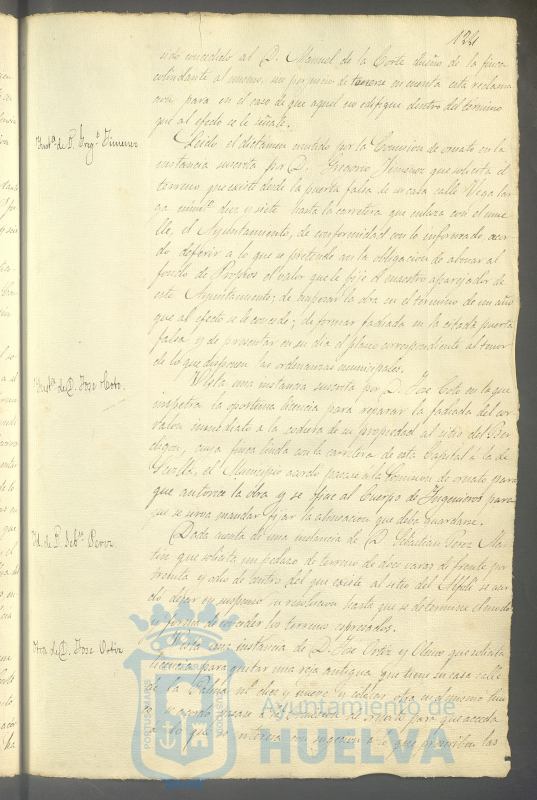 124
sido concedido al D. Manuel de la Corte dueño de la finca
colindante al mismo, sin perjuicio de tenerse en cuenta esta reclama
cion para en el caso de que aquel no edifique dentro del termino
que al efecto se le señale.
Instª. de D. Gregº. Jimenez
Leido el dictamen emitido por la Comision de ornato en la
instancia suscrita por D. Gregorio Jimenez que solicita el
terreno que existe desde la puerta falsa de su casa calle Vega lar
ga numº. diez y siete hasta la carretera que enlaza con el mue
lle, el Ayuntamiento, de conformidad con lo informado, acor
dó deferir a lo que se pretende con la obligacion de abonar al
fondo de Propios el valor que le fije el maestro aparejador de
este Ayuntamiento; de empezar la obra en el termino de un año
que al efecto se le concede; de formar fachada en la citada puerta
falsa y de presentar en su dia el plano correspondiente al tenor
de lo que disponen las ordenanzas municipales.
Instª. de D. Jose Coto.
Vista una instancia suscrita por D. Jose Coto en la que
impetra la oportuna licencia para reparar la fachada del cor
ralon inmediato a la de su propiedad al sitio del
cuya finca linda con la carretera de esta Capital á la de
Sevilla, el Municipio acordó pasase á la Comision de ornato para
que autorice la obra y se oficie al Cuerpo de Ingenieros para
que se sirva mandar fijar la alineacion que deba guardarse.
Id. de D. Sebⁿ. Perez
Dada cuenta de una instancia de D. Sebastian Perez Mar
tin que solicita un pedazo de terreno de doce varas de frente por
treinta y ocho de centro del que existe al sitio del se acor
dó dejar en suspenso su resolucion hasta que se determine el modo
y forma de conceder los terrenos espresados.
Otra de D. Jose Ortiz
Vista una instancia de D. Jose Ortiz y que solicita
licencia para quitar una reja antigua que tiene su casa calle
de la Palma nº. diez y nueve y colocar otra en el mismo hue
co se acordó pasase a la Comision de Ornato para que acceda
a lo que se interesa con sugecion a lo que prescriben las
PORTUS MARIS
Ayuntamiento de
HUELVA